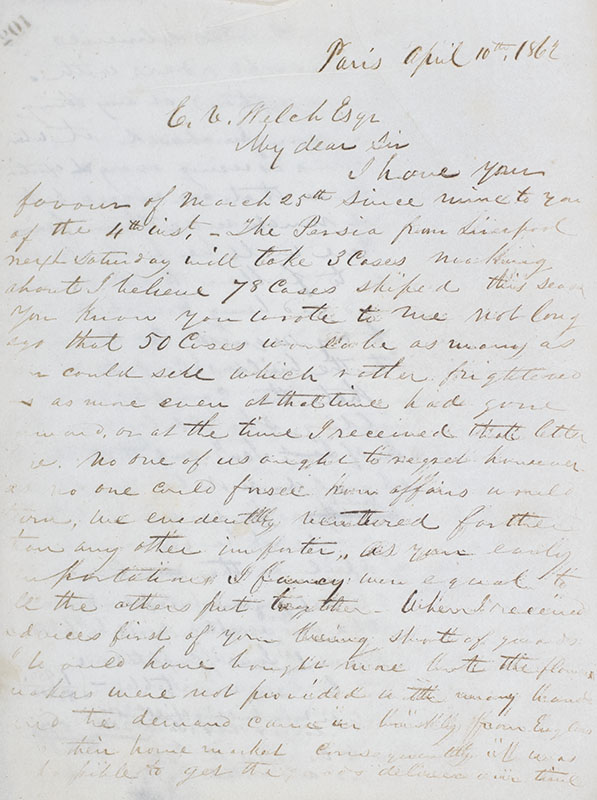 Paris April 10th. 1862
E. V. Welch Esqr
My dear Sir
I have your
favour of March 25th since mine to you
of the 4th inst, – The Persia from Liverpool
next Saturday will take 3 Cases making
about I believe 78 Cases shiped this seas
You know you wrote to me not long
ago that 50 Cases would be as many as
could sell which rather frightened
as more even at that time had gone
or at the time I received that letter
no one of us ought to regret however
no one could forsee how affairs would
turn, we evidently ventured farther
any other importer,, as your early
importations I fancy were equal to
the others put together – When I received
advices first of your being short of goods
I would have bought more but the flower
makers were not provided with many hands
and the demand came in briskly from
their home market consequently it was
to get the goods deliver in time